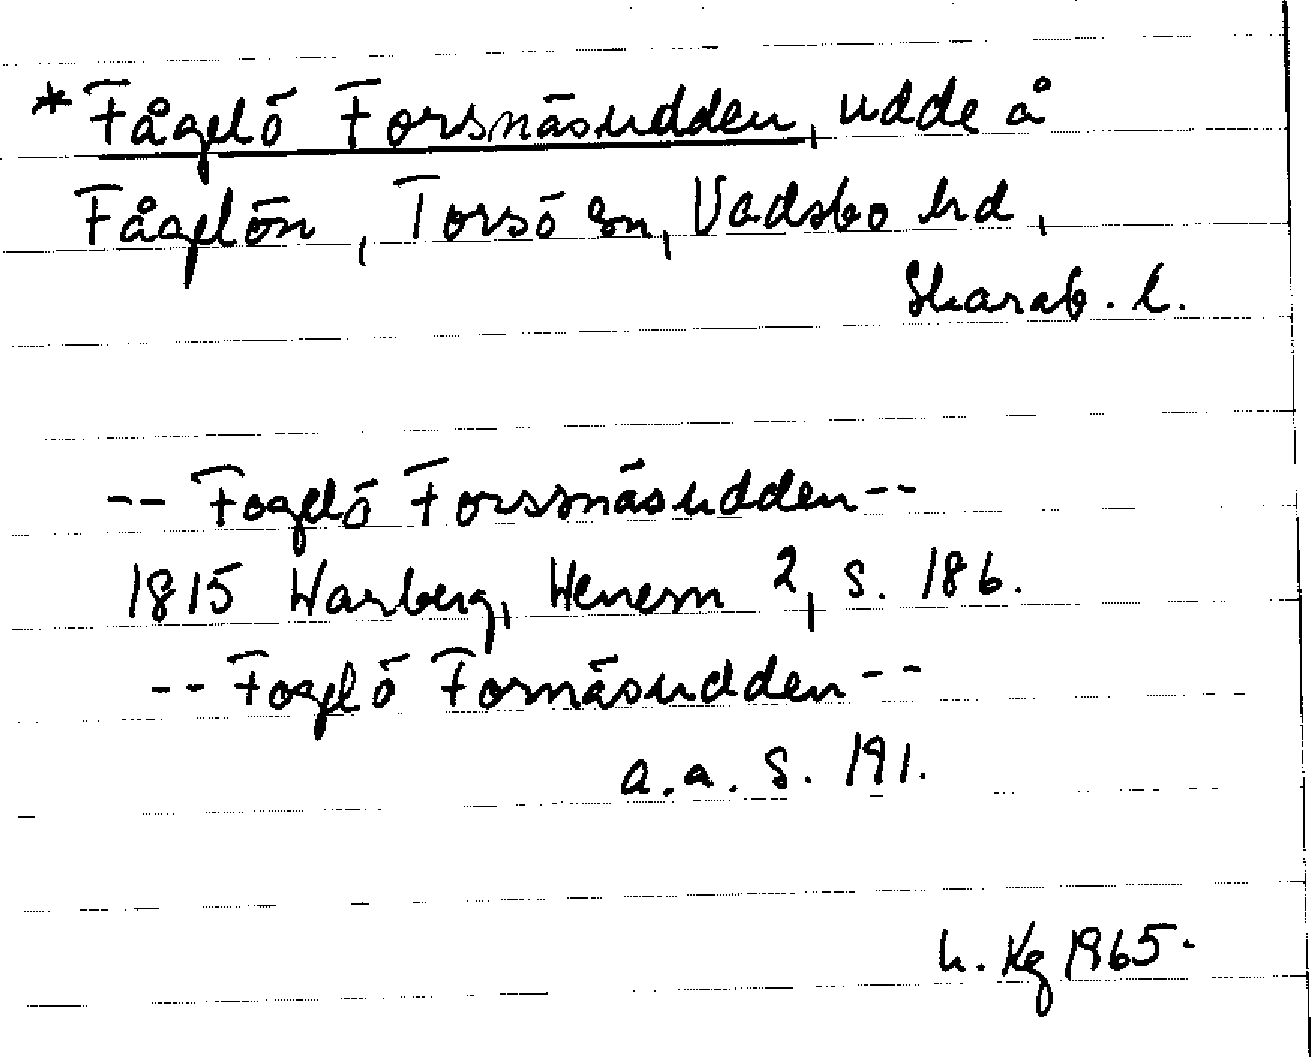 *Fågelö Forsnäsudden, udde å
Fågelön, Torsö sn, Vadsbo hd,
Skarab. l.
-- Fogelö Forssnäsudden --
1815 Warberg, Wenern 2, s. 186.
-- Fogelö Fornäsudden --
a.a. s. 191.
h. Kg 1965.